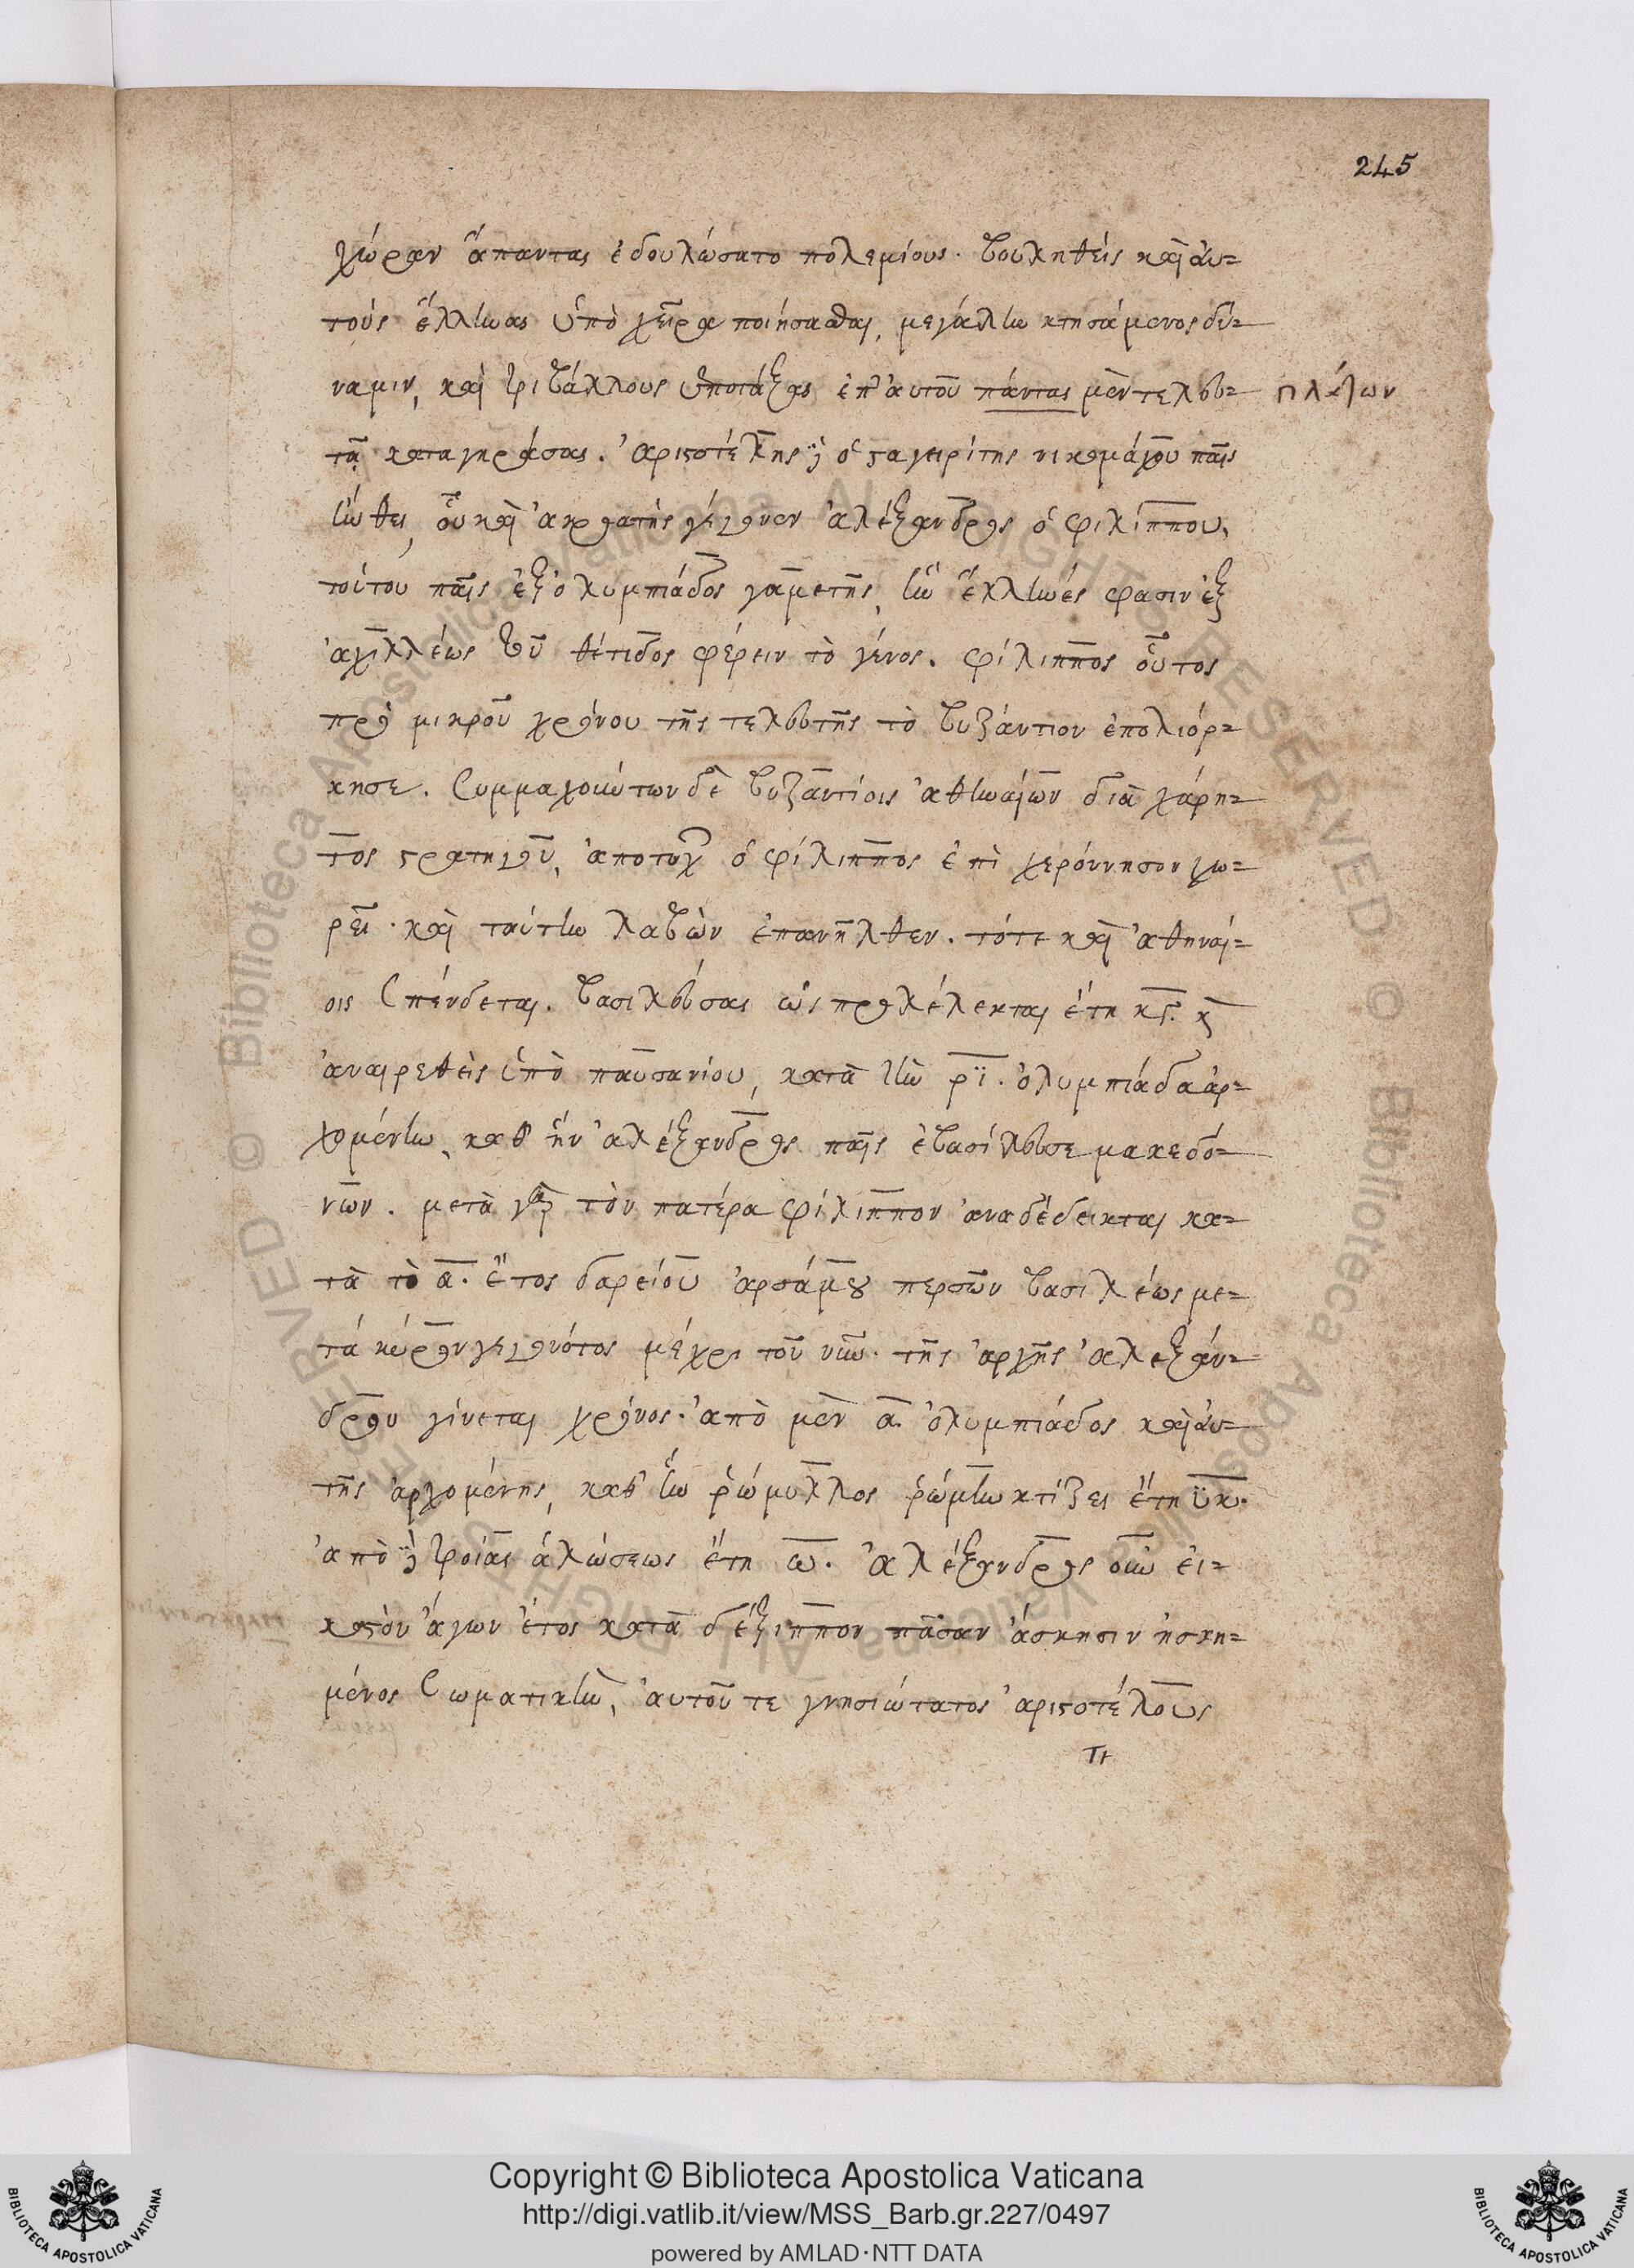 245
χώραν ἅπαντας ἐδουλώσατο πολεμίους. βουληθεὶς καὶ αὐ=
τοὺς ἕλληνας ὑπὸ χεῖρα ποιήσασθαι, μεγάλην κτησάμενος δύ=
ναμιν, καὶ τριβάλλους ὑποτάξας ἐπ' αὐτοῦ πάντας μὲν τελευ= πλάτων
τᾷ καταγηράσας. ἀριστοτέλης δὲ ὁ σταγειρίτης νικομάχου παῖς
ἤνθει, οὗ καὶ ἀκροατὴς γέγονεν ἀλέξανδρος ὁ φιλίππου,
τούτου παῖς ἐξ ὀλυμπιάδος γαμετῆς, ἣν ἕλληνές φασιν ἐξ
ἀχιλλέως τοῦ θέτιδος φέρειν τὸ γένος. φίλιππος οὗτος
πρὸ μικροῦ χρόνου τῆς τελευτῆς τὸ βυζάντιον ἐπολιόρ=
κησε. συμμαχούντων δὲ βυζαντίοις ἀθηναίων διὰ χάρη=
τος στρατηγοῦ, ἀποτυχ ὁ φίλιππος ἐπὶ χερόννησον χω=
ρεῖ. καὶ ταύτην λαβὼν ἐπανῆλθεν. τότε καὶ ἀθηναί=
οις σπένδεται. βασιλεύσας ὡς προλέλεκται ἔτη κγ. καὶ
ἀναιρεθεὶς ὑπὸ παυσανίου, κατὰ τὴν ρϊ. ὀλυμπιάδα ἀρ=
χομένην, καθ' ἣν ἀλέξανδρος παῖς ἐβασίλευσε μακεδό=
νων. μετὰ γὰρ τὸν πατέρα φίλιππον ἀναδέδεικται κα=
τὰ τὸ α. ἔτος δαρείου ἀρσάμου περσῶν βασιλέως με=
τὰ κύρον γεγονότος μέχρι τοῦ νῦν. τῆς ἀρχῆς ἀλεξάν=
δρου γίνεται χρόνος. ἀπὸ μὲν α. ὀλυμπιάδος καὶ αὐ=
τῆς ἀρχομένης, καθ' ἣν ῥώμυλλος ῥώμην κτίζει ἔτη ϋκ.
ἀπὸ δὲ τροίας ἁλώσεως ἔτη ω. ἀλέξανδρος οὖν εἰ=
κοστὸν ἄγων ἔτος κατὰ δέξιππον πᾶσαν ἄσκησιν ἠσκη=
μένος σωματικὴν, αὐτοῦ τε γνησιώτατος ἀριστοτέλους
Copyright © Biblioteca Apostolica Vaticana
http://digi.vatlib.it/view/MSS_Barb.gr.227/0497
powered by AMLAD·NTT DATA
BIBLIOTECA APOSTOLICA VATICANA
BIBLIOTECA APOSTOLICA VATICANA